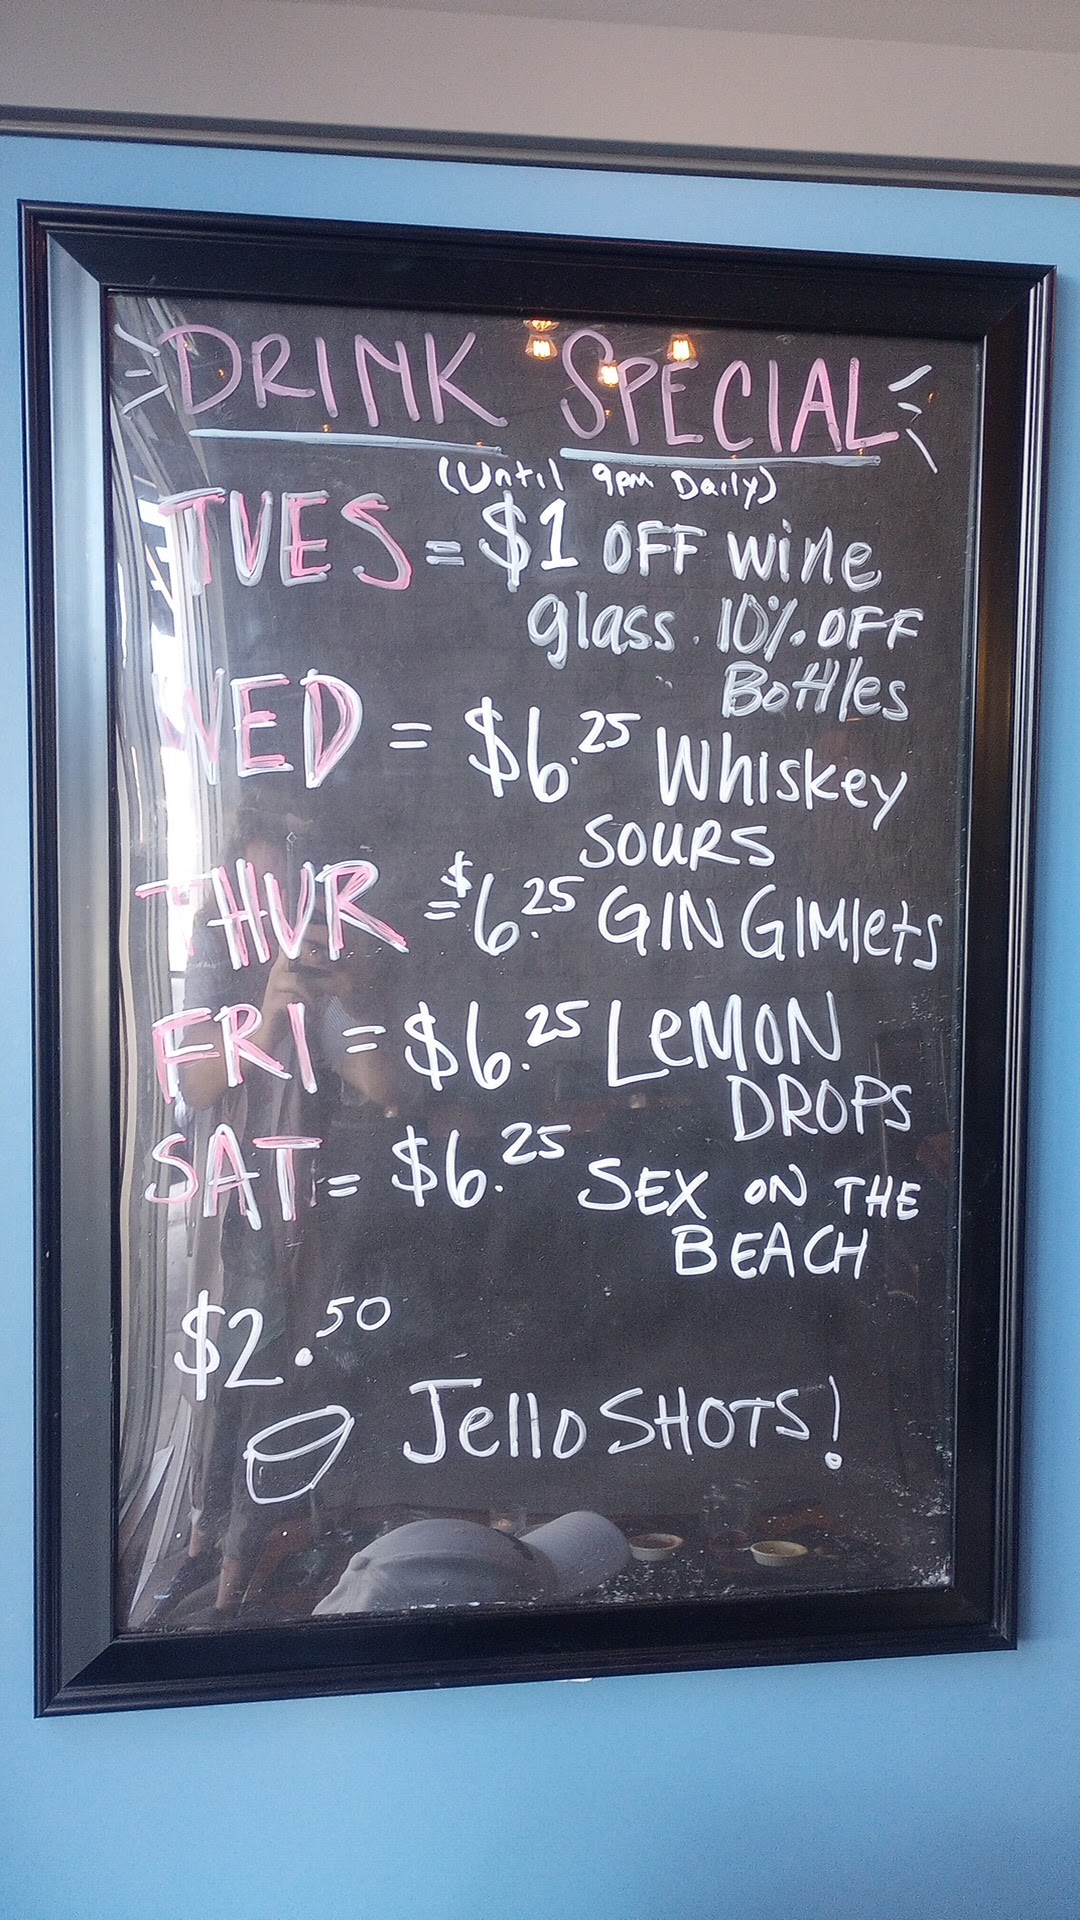 DRINK SPECIAL
(Until 9pm Daily)
TUES = $1 OFF wine
glass. 10% OFF
Bottles
WED = $6.25 Whiskey
SOURS
THUR = $6.25 GIN GIMlets
FRI = $6.25 LeMON
DROPS
SAT = $6.25 SEX ON THE
BEACH
$2.50
Jello SHOTS!